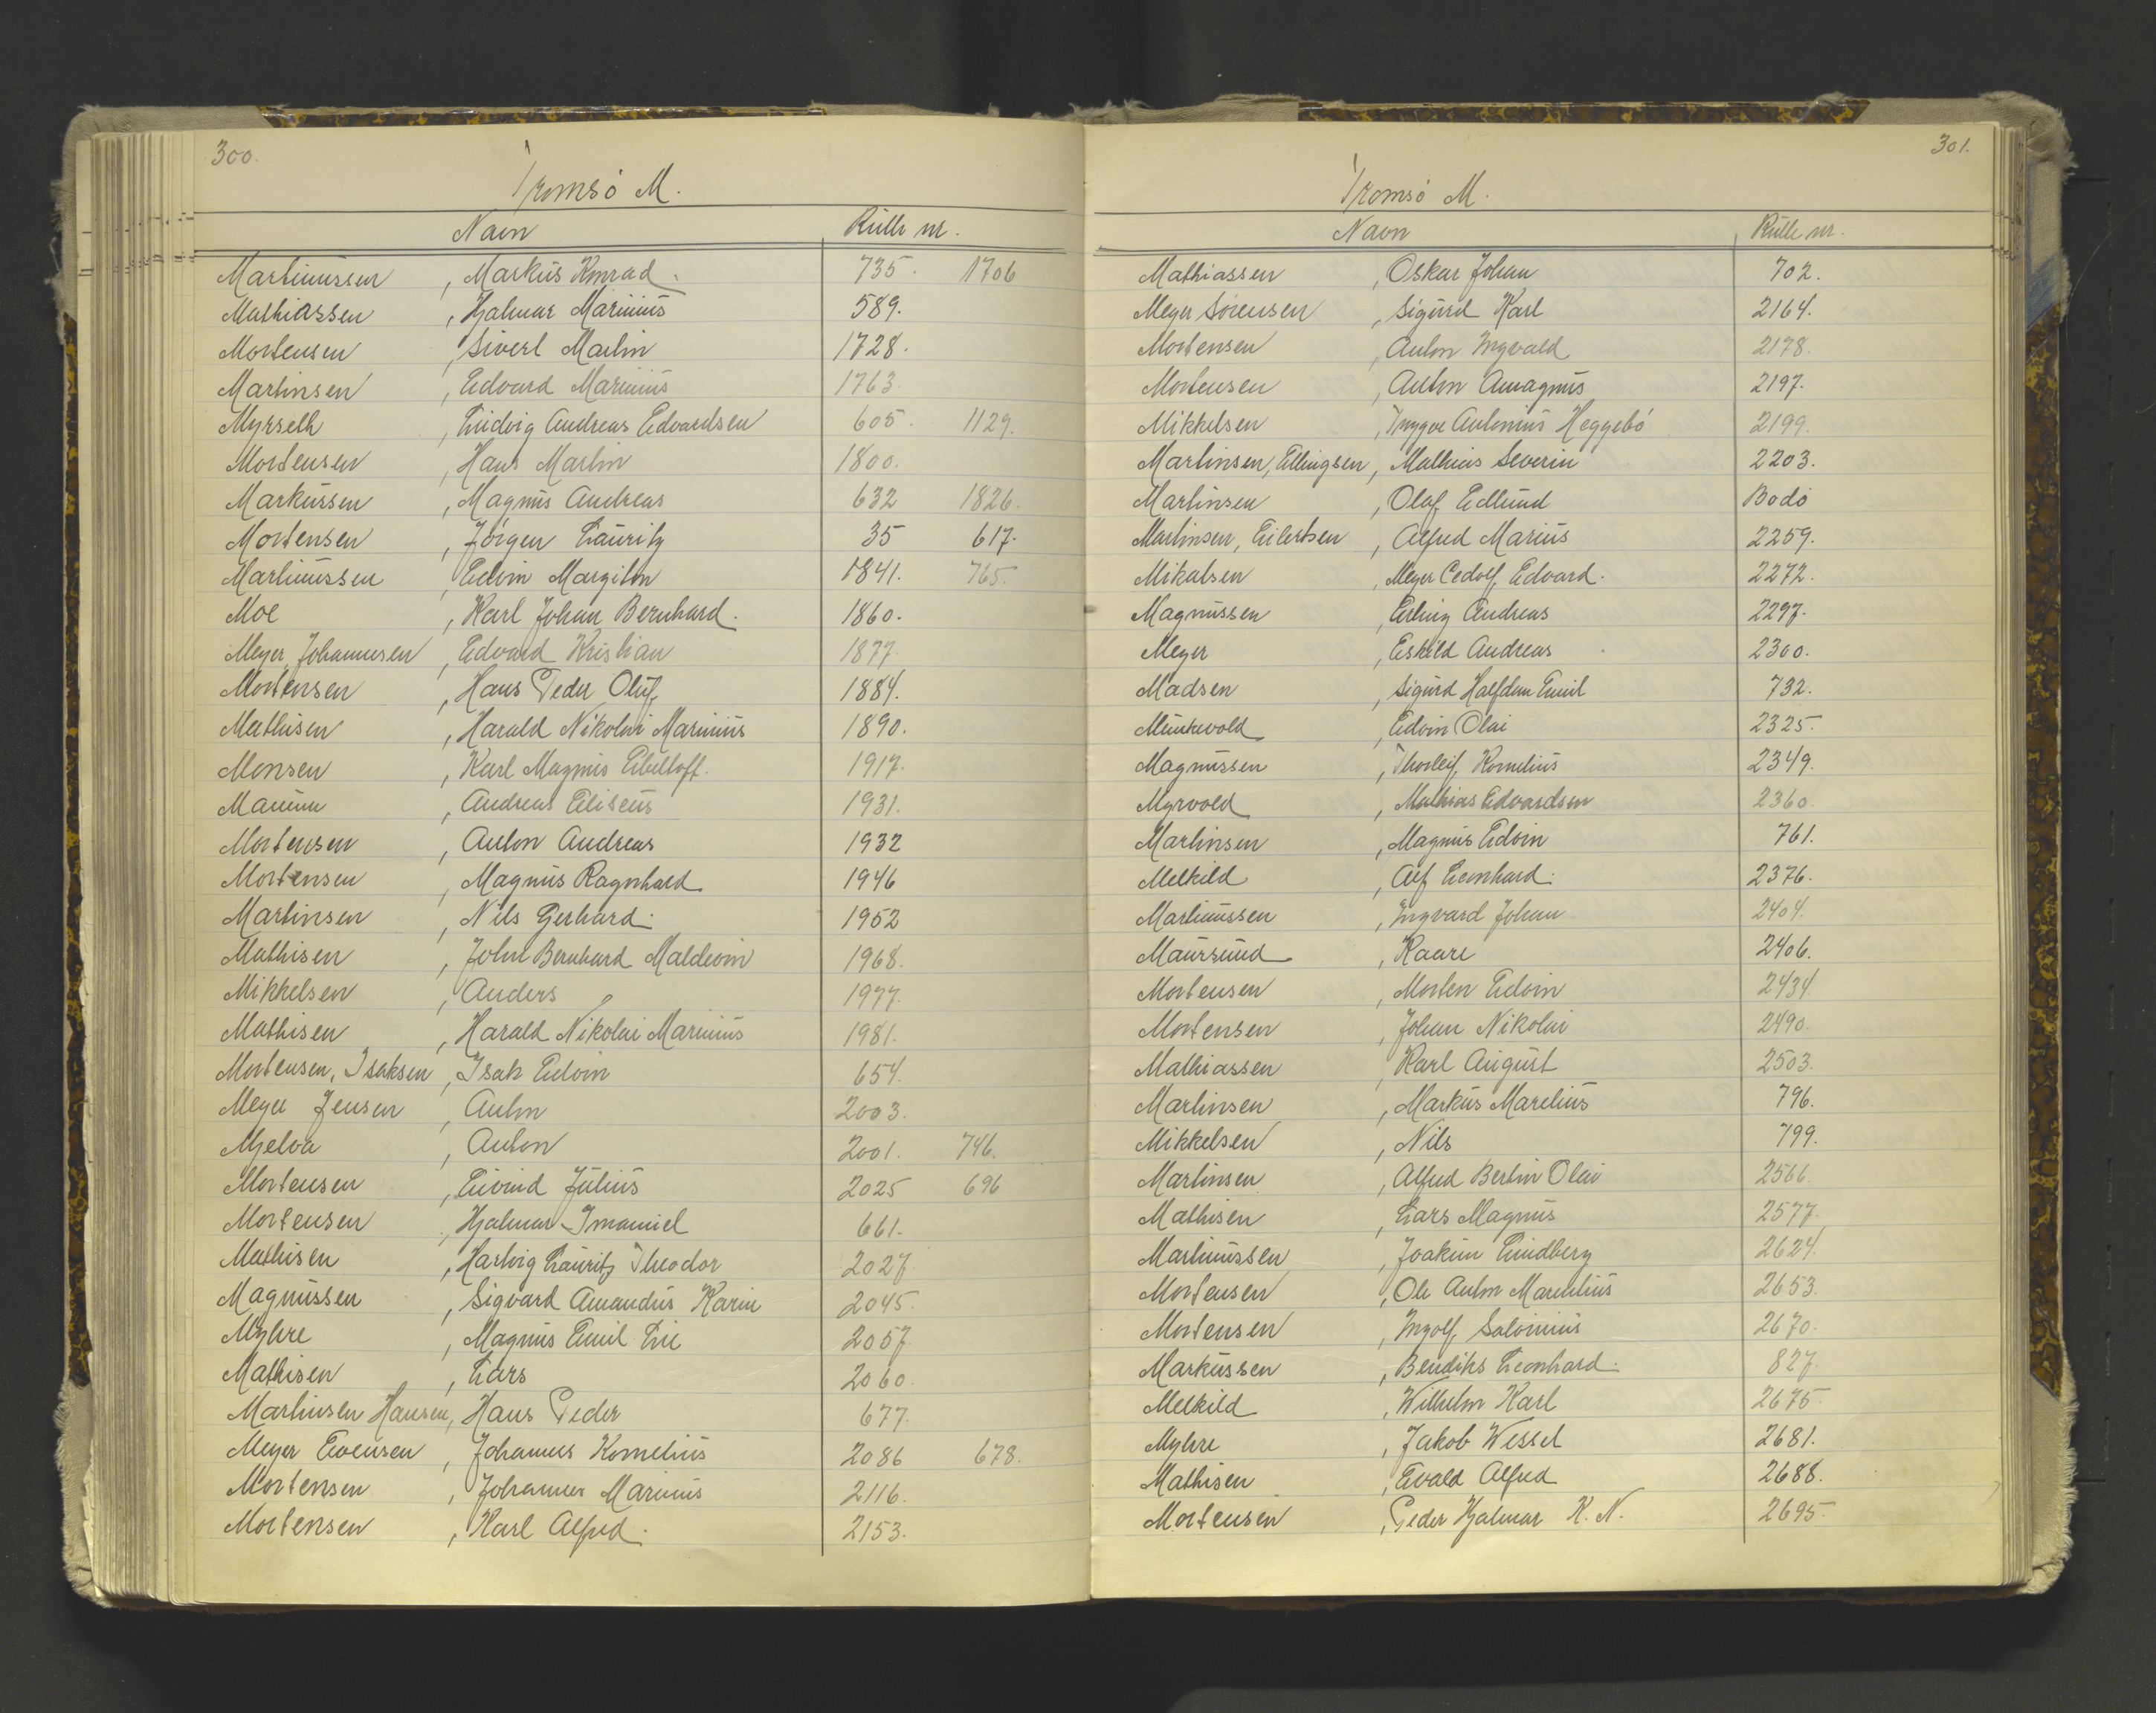 300.
Tromsö M.
Navn Rulle nr.
Martinussen, Markus Konrad. 735. 1706
Mathiassen, Hjalmar Marinius 589.
Mortensen, Sivert Martin 1728.
Martinsen, Edvard Marinius 1763.
Myrseth, Ludvig Andreas Edvardsen 605. 1129.
Mortensen, Hans Martin 1800.
Markussen, Magnus Andreas 632 1826.
Mortensen, Jörgen Lauritz 35 617.
Martinussen, Edvin Margiton 1841. 765.
Moe, Karl Johan Bernhard. 1860.
Meyer, Johannesen, Edvard Kristian 1877.
Mortensen, Hans Peder Oluf 1884.
Mathisen, Harald Nikolai Marinius 1890.
Monsen, Karl Magnus Ebeltoft. 1917.
Andreas Eliseus 1931.
Mortensen, Anton Andreas 1932
Mortensen, Magnus Ragnhald 1946
Martinsen, Nils Gerhard. 1952
Mathisen, John Bernhard Maldevin 1968.
Mikkelsen, Anders 1977.
Mathisen, Harald Nikolai Marinius 1981.
Mortensen, Isaksen, Isak Edvin 654.
Meyer Jensen, Anton 2003.
Mjelva, Anton 2001. 746.
Mortensen, Eivind Julius 2025 696
Mortensen, Hjalmar Imanuel 661.
Mathisen, Hartvig Lauritz Theodor 2027.
Magnussen, Sigvard Amandus Karin 2045.
Myhre, Magnus Emil Lie 2057.
Mathisen, Lars 2060.
Martinsen Hansen, Hans Peder 677.
Meyer Evensen, Johannes Kornelius 2086 678.
Mortensen, Johannes Marinius 2116.
Mortensen, Karl Alfred. 2153.
301.
Tromsö M.
Navn Rulle nr.
Mathiassen, Oskar Johan 702.
Meyer Sörensen, Sigurd Karl 2164.
Mortensen, Anton Ingvald 2178.
Mortensen, Anton Amagnus 2197.
Mikkelsen, Tryggve Antonius Heggebö 2199.
Martinsen, Ellingsen, Mathias Severin 2203.
Martinsen, Olaf Edlund Bodö
Martinsen, Eilertsen, Alfred Marius 2259.
Mikalsen, Meyer Cedolf Edvard. 2272.
Magnussen, Erling Andreas 2297.
Meyer, Eskild Andreas 2300.
Madsen, Sigurd Halfdan Emil 732.
Munkvold, Edvin Olai 2325.
Magnussen, Thorleif Kornelius 2349.
Myrvold, Mathias Edvardsen 2360.
Martinsen, Magnus Edvin 761.
Melkild, Alf Leonhard. 2376.
Martinussen, Ingvard Johan 2404.
Maursund, Kaare 2406.
Mortensen, Morten Edvin 2434.
Mortensen, Johan Nikolai 2490.
Mathiassen, Karl August 2503.
Martinsen, Markus Marelius 796.
Mikkelsen, Nils 799.
Martinsen, Alfred Bertin Olai 2566.
Mathisen, Lars Magnus 2577.
Martinussen, Joakim Lindberg 2624.
Mortensen, Ole Anton Marelius 2653.
Mortensen, Ingolf Salonius 2670.
Markussen, Bendiks Leonhard. 827.
Melkild, Wilhelm Karl 2675.
Myhre, Jakob Wessel 2681.
Mathisen, Evald Alfred 2688.
Mortensen, Peder Hjalmar K. N. 2695.